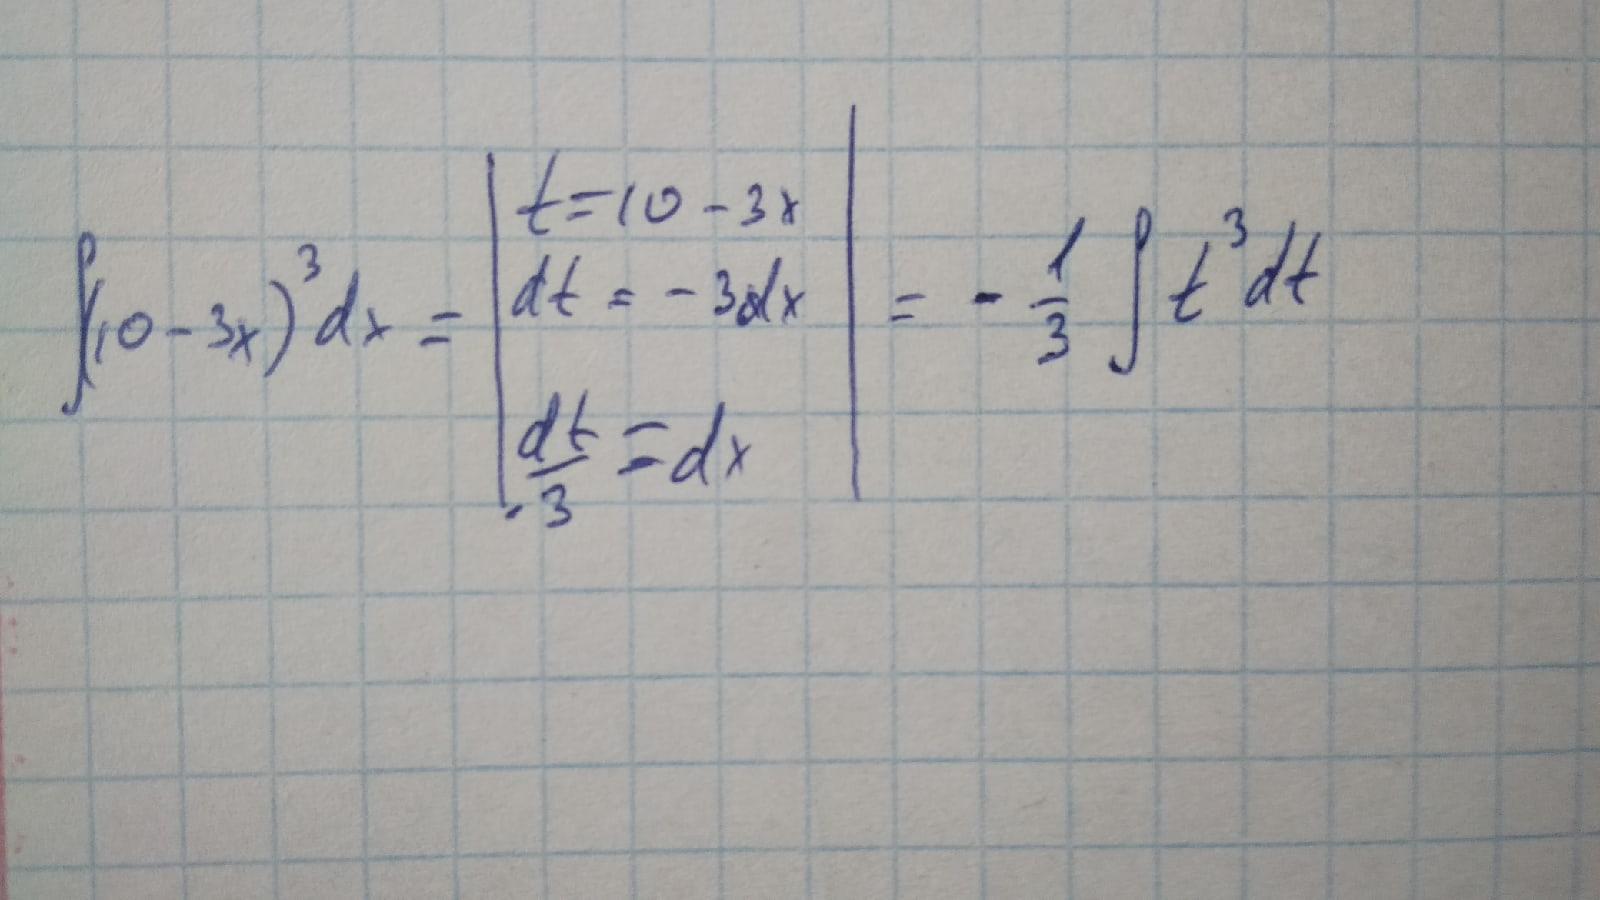 ∫(10-3x)³dx = | t=10-3x
dt = -3dx
dt/-3 = dx | = -1/3 ∫ t³dt